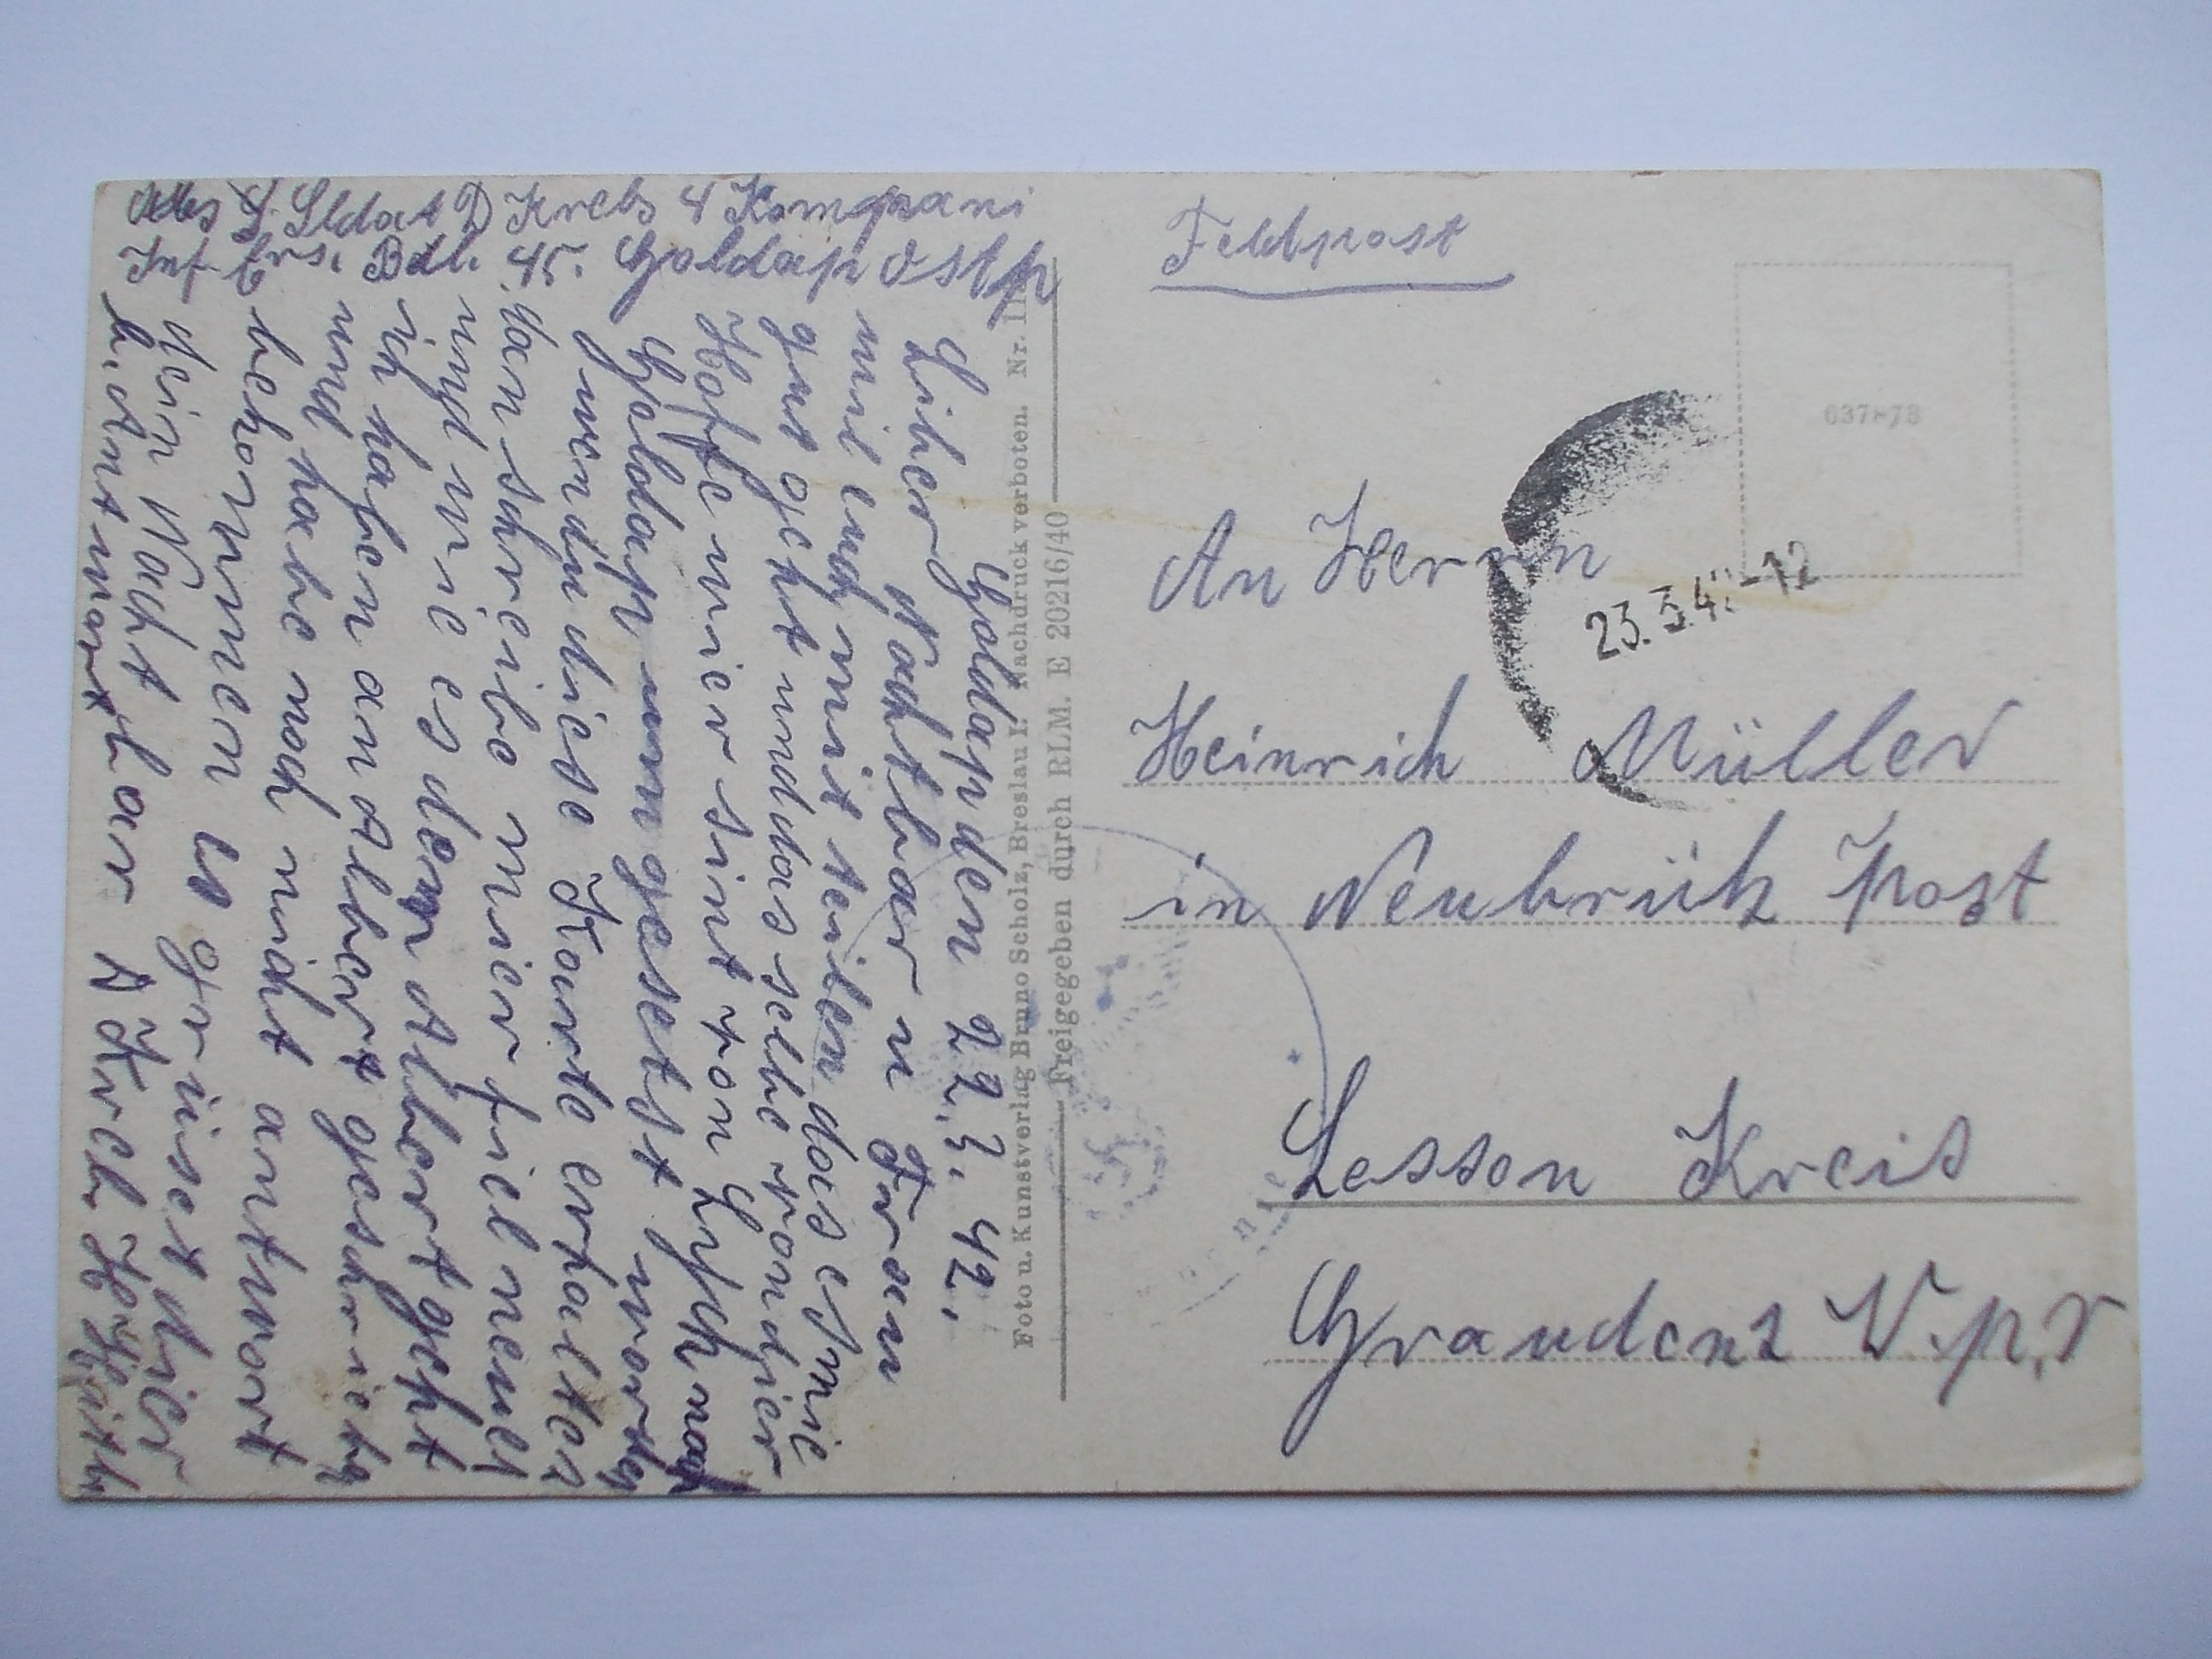 Abs S. Sldat D Krebs 4 Kompani
Inf. Ers. Batl. 45. Goldap Ostp
Goldap den 22.3. 42.
Liber Nachtbar u Frau
will euch mit teilen das es mie
gut geht und das selbe von hier
Hoffe wier sint von Lyck nach
Goldap um gesetst worden
wen du diese Karte erhalten
dan schreibe mier fiel neues
und wie es dem Albert geht
ich haben an Albert geschrieben
und habe noch nicht antwort
bekommen es grüset dier
dein Nacht
bar D Kreb
Foto u. Kunstverlag Bruno Scholz, Breslau I. Nachdruck verboten. Nr.
Freigegeben durch RLM. E 20216/40
Feldpost
637-73
23.3.4 -12
An Herrn
Heinrich Müller
in Neubrük Post
Lessen Kreis
Graudenz W.p.r